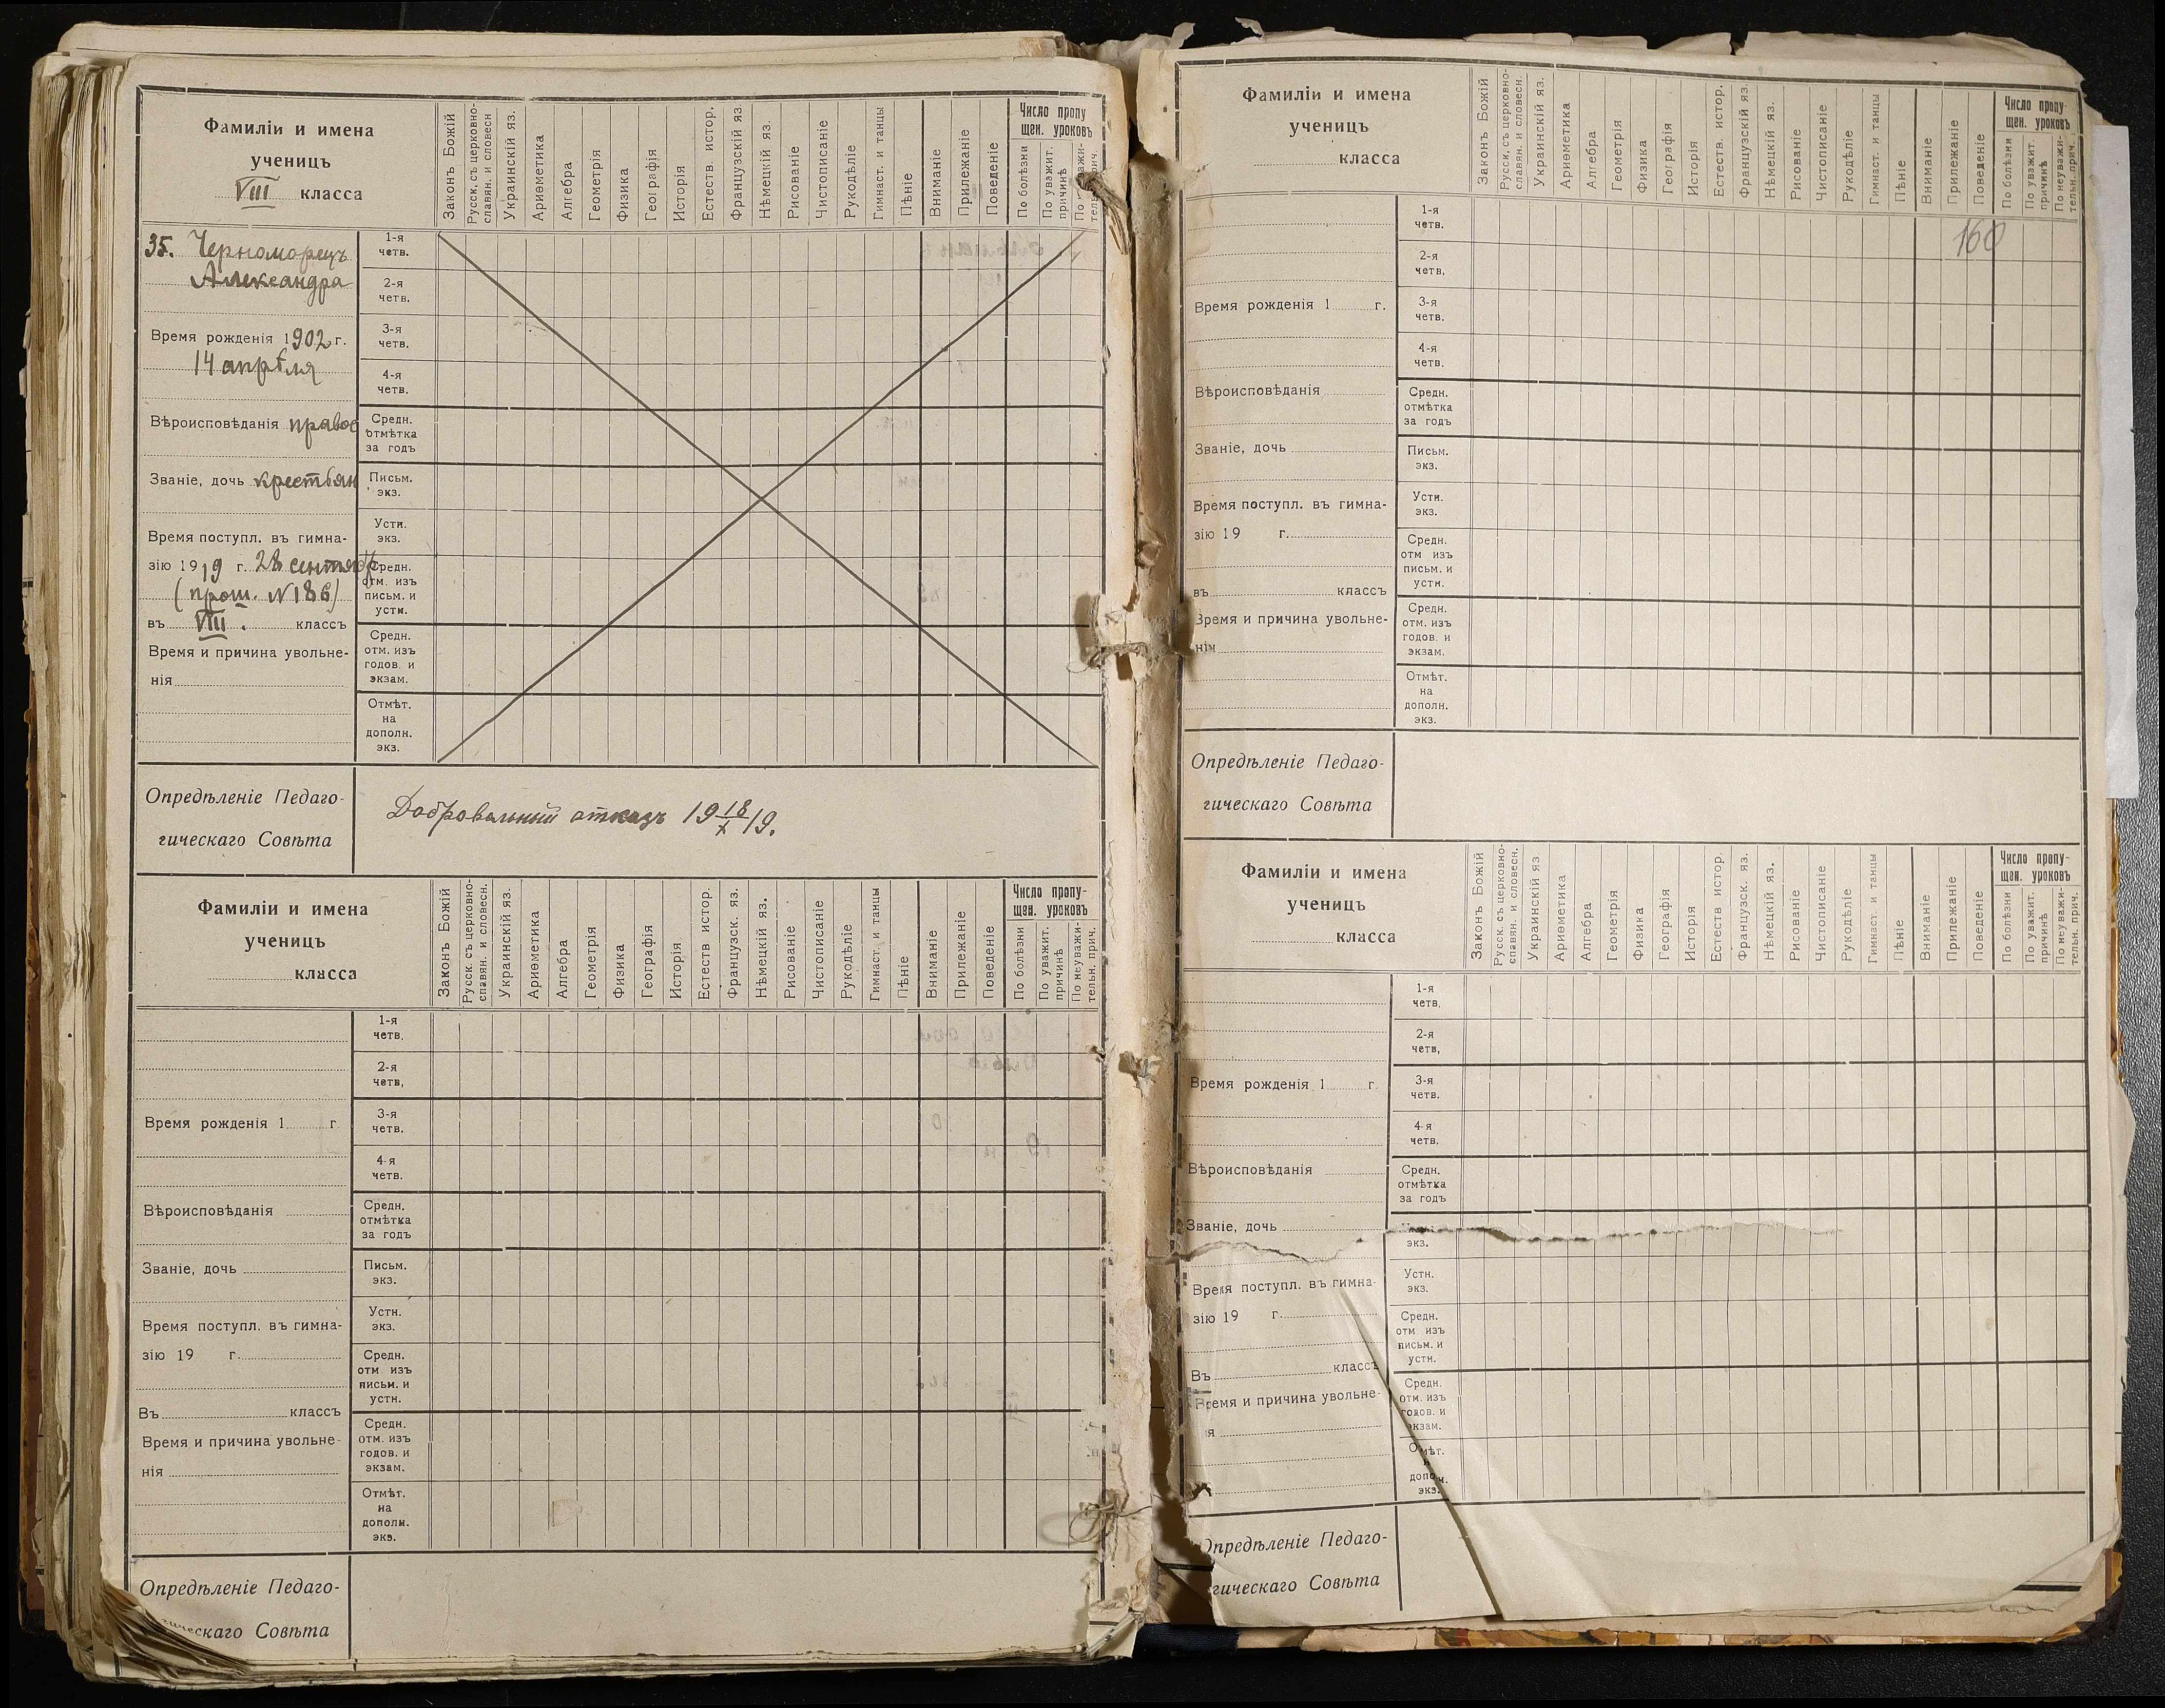 Фамиліи и имена
ученицъ
VIII класса
Законъ Божій
Русск. съ церковно-
славян. и словесн
Украинскій яз.
Ариѳметика
Алгебра
Геометрія
Физика
Географія
Исторія
Естеств. истор.
Французскій яз.
Нѣмецкій яз.
Рисованіе
Чистописаніе
Рукодѣліе
Гимнаст. и танцы
Пѣніе
Вниманіе
Прилежаніе
Поведеніе
Число пропу
щен. уроковъ
По болѣзни
По уважит.
причинѣ
35. Черноморецъ
Александра
Время рожденія 1902 г.
14 апрѣля
Вѣроисповѣданія правос
Званіе, дочь крестьян
Время поступл. въ гимна-
зію 1919 г. 28 сентяб
(прош. N 186)
въ VIII. классъ
Время и причина увольне-
нія
1-я
четв.
2-я
четв.
3-я
четв.
4-я
четв.
Средн.
отмѣтка
за годъ
Письм.
экз.
Устн.
экз.
Средн.
отм. изъ
письм. и
устн.
Средн.
отм. изъ
годов. и
экзам.
Отмѣт.
на
дополн.
экз.
Опредѣленіе Педаго-
гическаго Совѣта
Добровольный отказъ 19 18/X 19.
Фамиліи и имена
ученицъ
класса
Законъ Божій
Русск. съ церковно-
славян. и словесн.
Украинскій яз.
Ариѳметика
Алгебра
Геометрія
Физика
Географія
Исторія
Естеств истор.
Французск. яз.
Нѣмецкій яз.
Рисованіе
Чистописаніе
Рукодѣліе
Гимнаст. и танцы
Пѣніе
Вниманіе
Прилежаніе
Поведеніе
Число пропу-
щен. уроковъ
По болѣзни
По уважит.
причинѣ
По неуважи-
тельн. прич.
Время рожденія 1 г
Вѣроисповѣданія
Званіе, дочь
Время поступл. въ гимна-
зію 19 г.
Въ классъ
Время и причина увольне-
нія
1-я
четв.
2-я
четв,
3-я
четв.
4-я
четв.
Средн.
отмѣтка
за годъ
Письм.
экз.
Устн.
экз.
Средн.
отм изъ
письм. и
устн.
Средн.
отм. изъ
годов. и
экзам.
Отмѣт.
на
дополн.
экз.
Опредѣленіе Педаго-
гическаго Совѣта
Фамиліи и имена
ученицъ
класса
Законъ Божій
Русск. съ церковно-
славян. и словесн.
Украинскій яз.
Ариѳметика
Алгебра
Геометрія
Физика
Географія
Исторія
Естеств. истор.
Французскій яз.
Нѣмецкій яз.
Рисованіе
Чистописаніе
Рукодѣліе
Гимнаст. и танцы
Пѣніе
Вниманіе
Прилежаніе
Поведеніе
Число пропу-
щен. уроковъ
По болѣзни
По уважит.
причинѣ
По неуважи-
тельн. прич.
160
Время рожденія 1 г.
Вѣроисповѣданія
Званіе, дочь
Время поступл. въ гимна-
зію 19 г.
въ классъ
Время и причина увольне-
нія
1-я
четв.
2-я
четв.
3-я
четв.
4-я
четв.
Средн.
отмѣтка
за годъ
Письм.
экз.
Устн.
экз.
Средн.
отм изъ
письм. и
устн.
Средн.
отм. изъ
годов. и
экзам.
Отмѣт.
на
дополн.
экз.
Опредѣленіе Педаго-
гическаго Совѣта
Фамиліи и имена
ученицъ
класса
Законъ Божій
Русск. съ церковно-
славян. и словесн.
Украинскій яз
Ариѳметика
Алгебра
Геометрія
Физика
Географія
Исторія
Естеств истор.
Французск. яз.
Нѣмецкій яз.
Рисованіе
Чистописаніе
Рукодѣліе
Гимнаст. и танцы
Пѣніе
Вниманіе
Прилежаніе
Поведеніе
Число пропу-
щен. уроковъ
По болѣзни
По уважит.
причинѣ
По неуважи-
тельн. прич.
Время рожденія 1 г
Вѣроисповѣданія
Званіе, дочь
Время поступл. въ гимна-
зію 19 г.
Въ классъ
Время и причина увольне-
я
1-я
четв,
2-я
четв,
3-я
четв.
4-я
четв.
Средн.
отмѣтка
за годъ
экз.
Устн.
экз.
Средн.
отм изъ
письм. и
устн.
Средн.
отм. изъ
годов. и
экзам.
Отмѣт.
дополн.
экз.
Опредѣленіе Педаго-
гическаго Совѣта